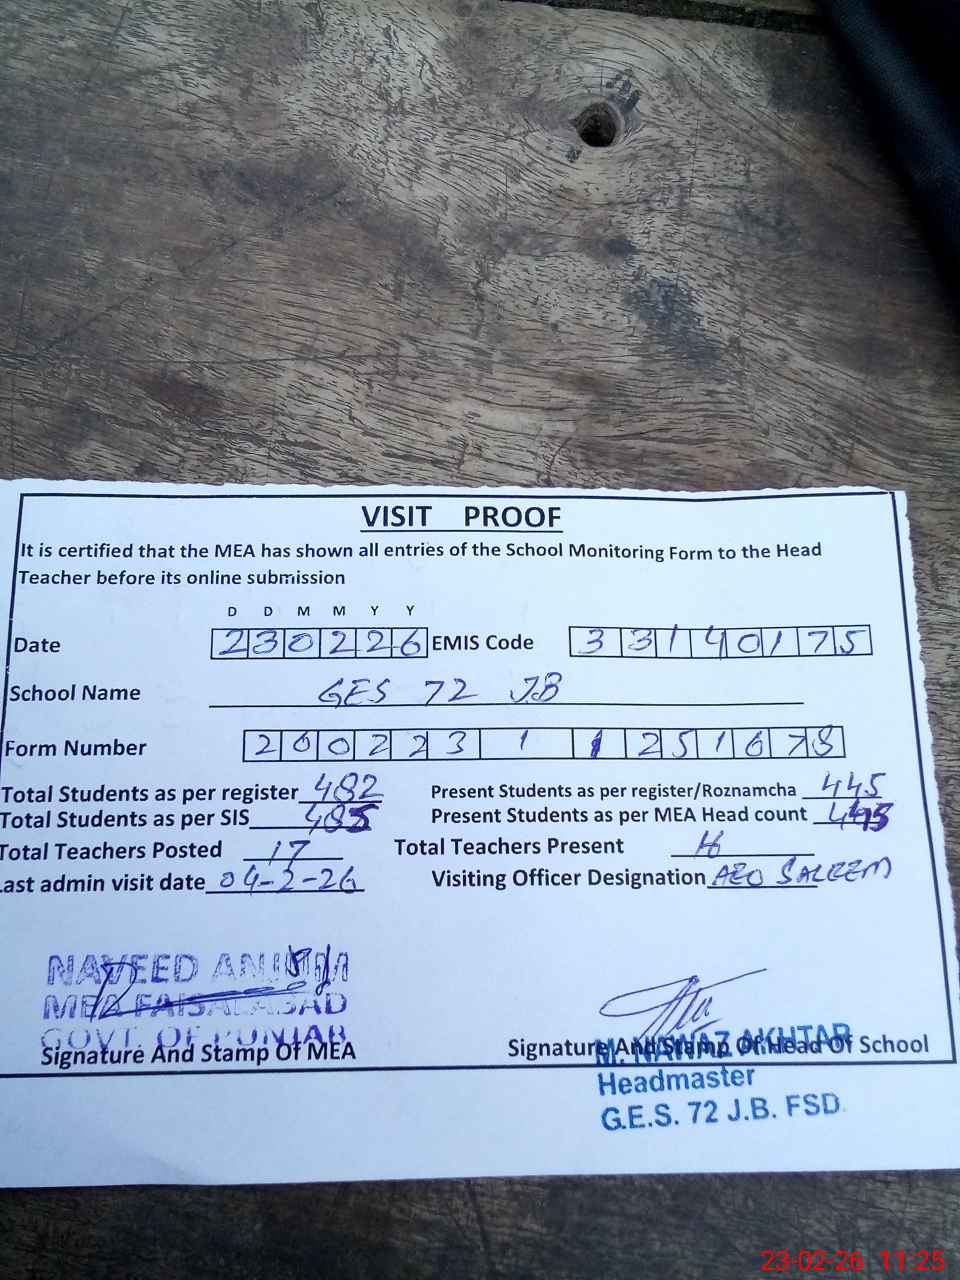 VISIT PROOF
It is certified that the MEA has shown all entries of the School Monitoring Form to the Head
Teacher before its online submission
D D M M Y Y
Date 2 3 0 2 2 6 EMIS Code 3 3 1 4 0 1 7 5
School Name GES 72 J.B
Form Number 2 0 0 2 2 3 1 1 2 5 1 6 7 8
Total Students as per register 482 Present Students as per register/Roznamcha 445
Total Students as per SIS Present Students as per MEA Head count
Total Teachers Posted 17 Total Teachers Present
Last admin visit date 04-2-26 Visiting Officer Designation AEO SALEEM
NAVEED
MEA FAISALABAD
GOVT. OF PUNJAB
Signature And Stamp Of MEA Signature And Stamp Of Head Of School
M. NAWAZ AKHTAR
Headmaster
G.E.S. 72 J.B. FSD.
23-02-26 11:25